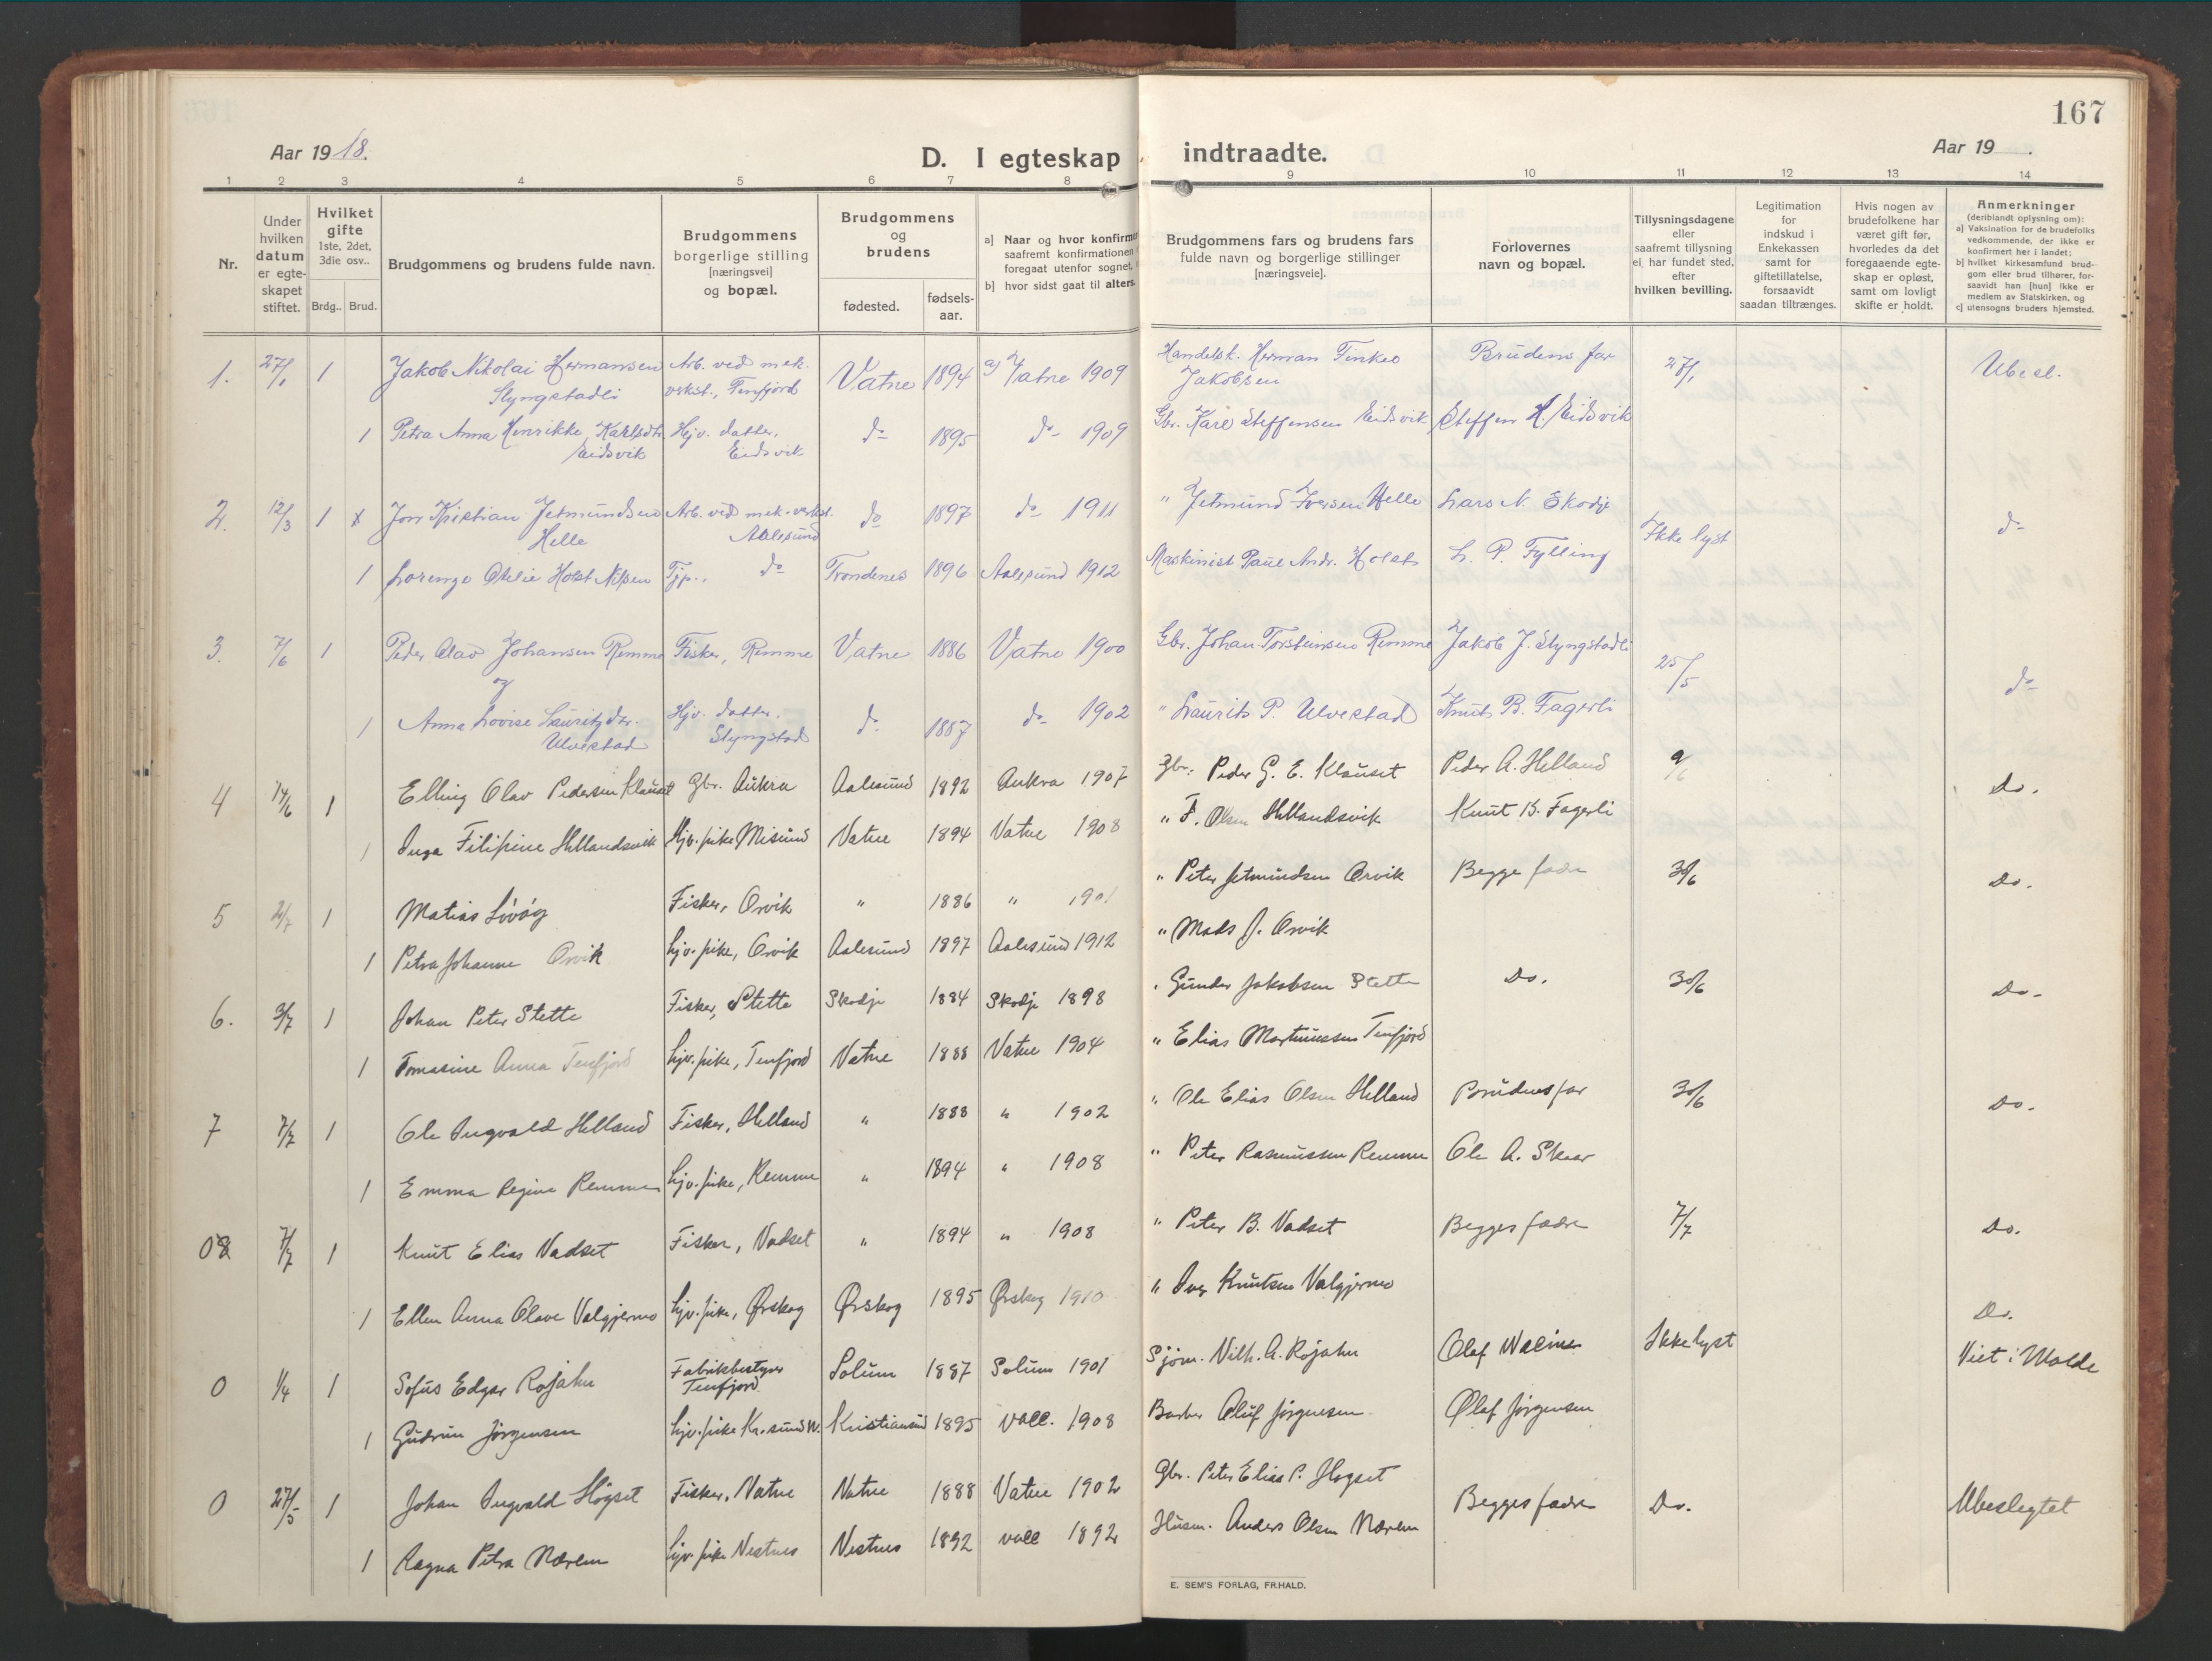 167
Aar 1918.
D. I egteskap indtraadte.
Aar 19 .
1 2 3 4 5 6 7 8 9 10 11 12 13 14
Nr.
Under hvilken datum er egteskapet stiftet.
Hvilket gifte 1ste, 2det, 3die osv..
Brdg.. Brud.
Brudgommens og brudens fulde navn.
Brudgommens borgerlige stilling [næringsvei] og bopæl.
Brudgommens og brudens
fødested. fødsels-aar.
a] Naar og hvor konfirme
saafremt konfirmationen
foregaat utenfor sognet,
b] hvor sidst gaat til alters.
Brudgommens fars og brudens fars fulde navn og borgerlige stillinger [næringsveie].
Forlovernes navn og bopæl.
Tillysningsdagene eller saafremt tillysning ei har fundet sted, efter hvilken bevilling.
Legitimation for indskud i Enkekassen samt for giftetillatelse, forsaavidt saadan tiltrænges.
Hvis nogen av brudefolkene har været gift før, hvorledes da det foregaaende egteskap er opløst, samt om lovligt skifte er holdt.
Anmerkninger (deriblandt oplysning om): a] Vaksination for de brudefolks vedkommende, der ikke er konfirmert her i landet; b] hvilket kirkesamfund brudgom eller brud tilhører, forsaavidt han [hun] ikke er medlem av Statskirken, og c] utensogns bruders hjemsted.
1. 27/1 1 Jakob Nikolai Hermansen Slyngstadli Arb. ved mek. verkst., Tenfjord Vatne 1894 a) Vatne 1909 Handelsk. Herman Tinkeo Jakobsen Brudens far 27/1 Ubesl.
1 Petra Anna Henrikke Karlsdtr. Eidsvik Hjv. datter, Eidsvik do 1895 do 1909 Gbr. Karl Steffensen Eidsvik Steffen H. Eidsvik
2. 12/3 1 x Jon Kristian Jetmundsen Helle Arb. ved mek. verkst. Aalesund do 1897 do 1911 " Jetmund Iversen Helle Lars N. Skodje Ikke lyst do
1 Lorenze Otelie Holst Nilsen Tjp., do Trondenes 1896 Aalesund 1912 Maskinist Paul Andr. Holst L. P. Fylling
3. 7/6 1 Peder Olav Johansen Remme Fisker, Remme Vatne 1886 Vatne 1900 Gbr. Johan Torsteinsen Remme Jakob J. Slyngstadli 25/5 do
og
1 Anna Lovise Lauritzdtr. Ulvestad Hjv. datter, Slyngstad do 1887 do 1902 " Laurits P. Ulvestad Knut B. Fagerli
4 14/6 1 Elling Olav Pedersen Klauset Gbr. Aukra Aalesund 1892 Aukra 1907 Gbr. Peder G. E. Klauset Peder A. Helland 9/6 Do.
1 Inga Filipine Hellandsvik Hjv. pike Misund Vatne 1894 Vatne 1908 " F. Olsen Hellandsvik Knut B. Fagerli
5 2/7 1 Matias Lövög Fisker, Orvik " 1886 " 1901 " Peter Jetmundsen Orvik Begge fædre 30/6 Do.
1 Petra Johanne Orvik hjv. pike, Orvik Aalesund 1897 Aalesund 1912 " Mads J. Orvik
6. 3/7 1 Johan Peter Stette Fisker, Stette Skodje 1884 Skodje 1898 " Gunder Jakobsen Stette Do. 30/6 Do.
1 Tomasine Anna Tenfjord hjv. pike, Tenfjord Vatne 1888 Vatne 1904 " Elias Martinussen Tenfjord
7 7/7 1 Ole Ingvald Helland Fisker, Helland " 1888 " 1902 " Ole Elias Olsen Helland Brudens far 30/6 Do.
1 Emma Regine Remme hjv. pike, Remme " 1894 " 1908 " Peter Rasmussen Remme Ole A. Skaar
08 7/7 1 Knut Elias Vadset Fisker, Vadset " 1894 " 1908 " Peter B. Vadset Begges fædre 7/7 Do.
1 Ellen Anna Olave Valgjermo hjv. pike, Ørskog Ørskog 1895 Ørskog 1910 " Iver Knutsen Valgjermo
0 1/4 1 Sofus Edgar Rojahn Fabrikbestyrer Tenfjord Solum 1887 Solum 1901 Sjöm. Vilh. A. Rojahn Olaf Walme Ikke lyst Do. Viet i Molde
1 Gudrun Jörgensen hjv. pike Kr. sund N. Kristiansund 1895 voll. 1908 Barber Oluf Jörgensen Olaf Jörgensen
0 27/5 1 Johan Ingvald Högset Fisker, Vatne Vatne 1888 Vatne 1902 Gbr. Peter Elias P. Högset Begges fædre Do. Ubeslegtet
1 Ragna Petra Nærem hjv. pike Vestnes Vestnes 1892 voll 1892 Husm. Anders Olsen Nærem
E. SEM'S FORLAG, FR.HALD.